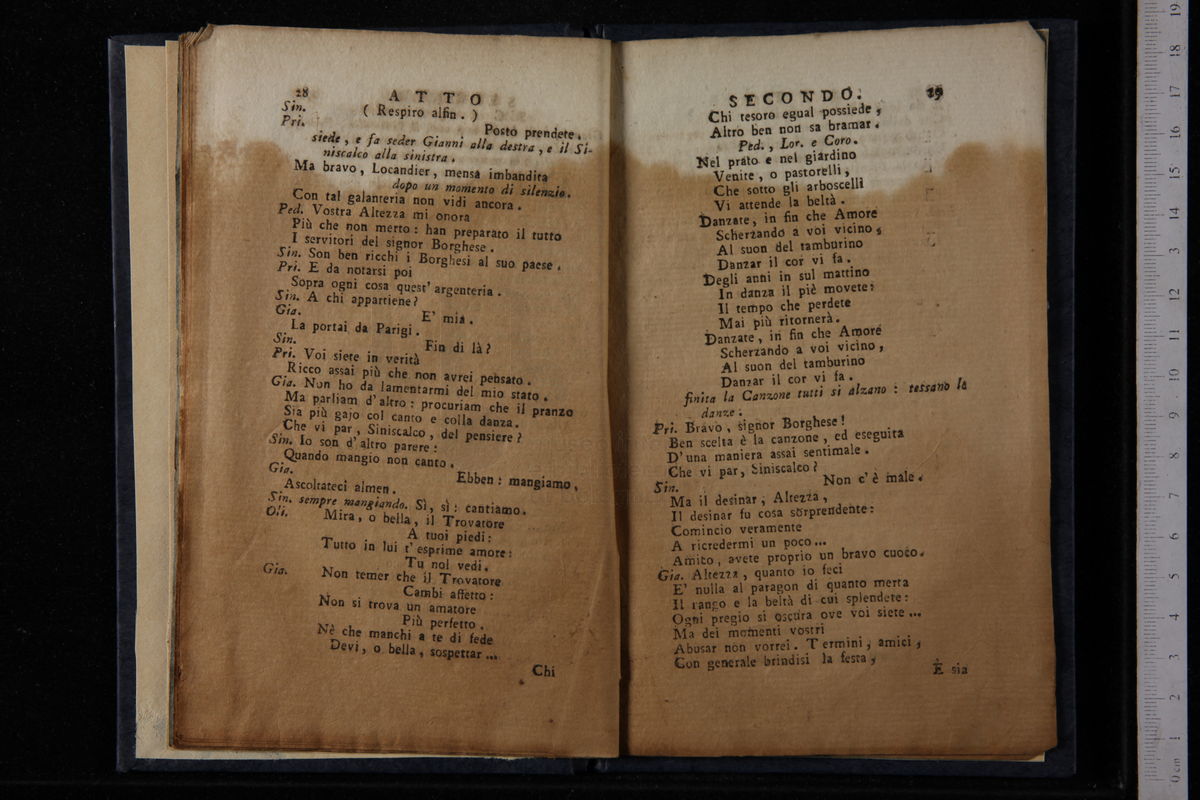 28 ATTO
Sin. ( Respiro alfin. )
Pri. Posto prendete.
siede, e fa seder Gianni alla destra, e il Si-
niscalco alla sinistra.
Ma bravo, Locandier, mensa imbandita
dopo un momento di silenzio.
Con tal galanteria non vidi ancora.
Ped. Vostra Altezza mi onora
Più che non merto: han preparato il tutto
I servitori del signor Borghese.
Sin. Son ben ricchi i Borghesi al suo paese.
Pri. E da notarsi poi
Sopra ogni cosa quest' argenteria.
Sin. A chi appartiene?
Gia. E' mia.
La portai da Parigi.
Sin. Fin di là?
Pri. Voi siete in verità
Ricco assai più che non avrei pensato.
Gia. Non ho da lamentarmi del mio stato.
Ma parliam d'altro: procuriam che il pranzo
Sia più gajo col canto e colla danza.
Che vi par, Siniscalco, del pensiere?
Sin. Io son d'altro parere:
Quando mangio non canto.
Gia. Ebben: mangiamo,
Ascoltateci almen.
Sin. sempre mangiando. Sì, sì: cantiamo.
Oli. Mira, o bella, il Trovatore
A tuoi piedi:
Tutto in lui t'esprime amore:
Tu nol vedi.
Gia. Non temer che il Trovatore
Cambi affetto:
Non si trova un amatore
Più perfetto.
Nè che manchi a te di fede
Devi, o bella, sospettar ...
Chi
SECONDO. 29
Chi tesoro egual possiede,
Altro ben non sa bramar.
Ped., Lor. e Coro.
Nel prato e nel giardino
Venite, o pastorelli,
Che sotto gli arboscelli
Vi attende la beltà.
Danzate, in fin che Amore
Scherzando a voi vicino,
Al suon del tamburino
Danzar il cor vi fa.
Degli anni in sul mattino
In danza il piè movete:
Il tempo che perdete
Mai più ritornerà.
Danzate, in fin che Amore
Scherzando a voi vicino,
Al suon del tamburino
Danzar il cor vi fa.
finita la Canzone tutti si alzano: tessano le
danze.
Pri. Bravo, signor Borghese!
Ben scelta è la canzone, ed eseguita
D'una maniera assai sentimale.
Che vi par, Siniscalco?
Sin. Non c'è male.
Ma il desinar, Altezza,
Il desinar fu cosa sorprendente:
Comincio veramente
A ricredermi un poco...
Amico, avete proprio un bravo cuoco.
Gia. Altezza, quanto io feci
E' nulla al paragon di quanto merta
Il rango e la beltà di cui splendete:
Ogni pregio si oscura ove voi siete ...
Ma dei momenti vostri
Abusar non vorrei. Termini, amici,
Con generale brindisi la festa,
E sia